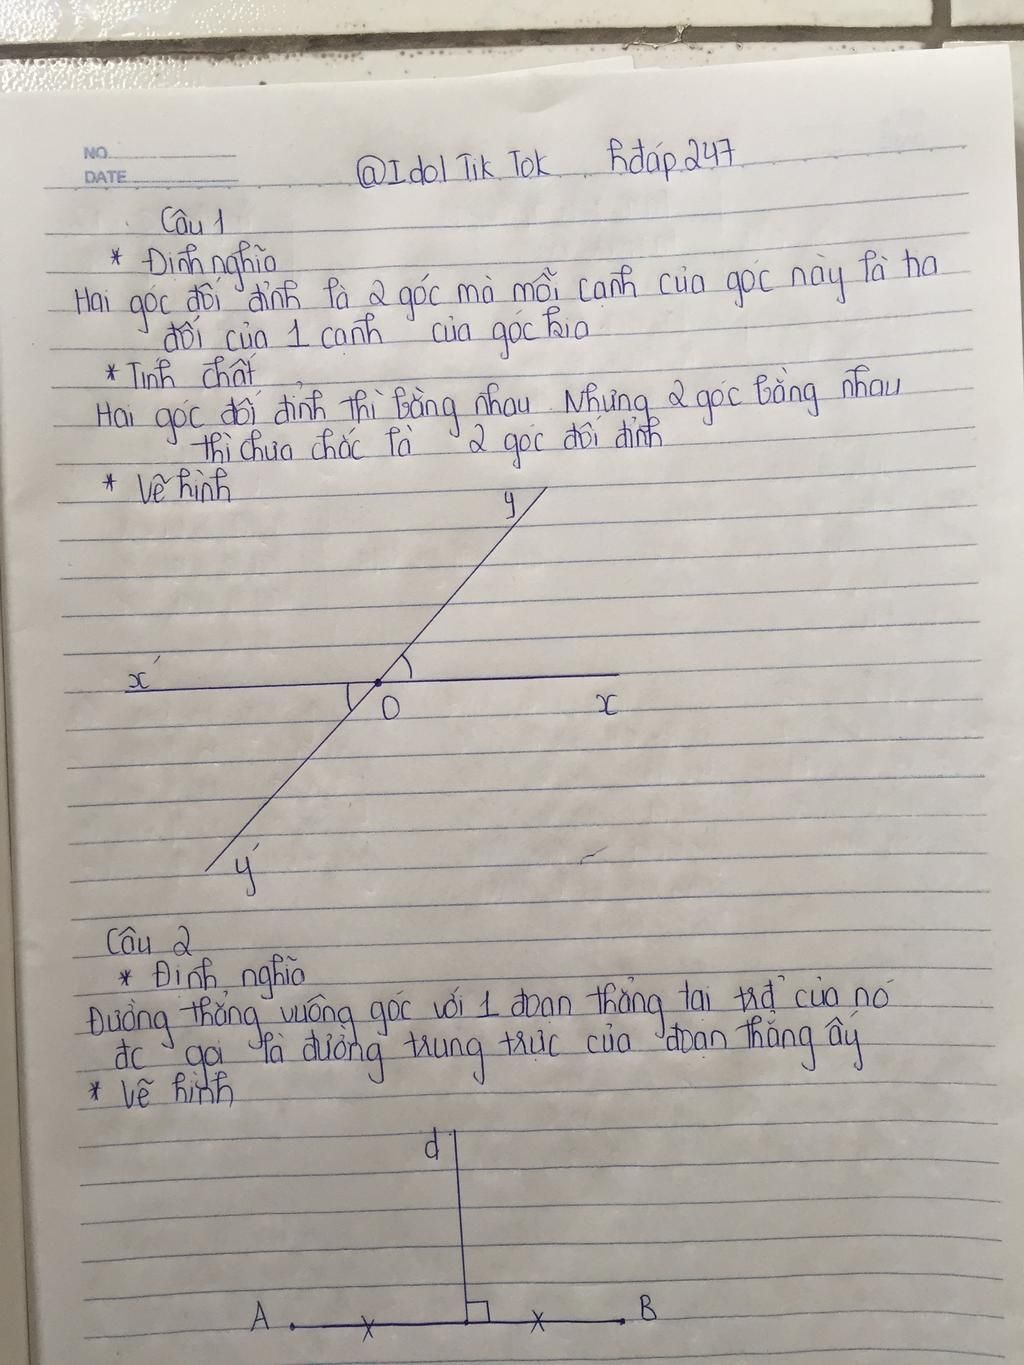 NO.
DATE
@Idol Tik Tok hđáp 247
Câu 1
* Định nghĩa
Hai góc đối đỉnh là 2 góc mà mỗi cạnh của góc này là tia
đối của 1 cạnh của góc kia
* Tính chất
Hai góc đối đỉnh thì bằng nhau. Nhưng 2 góc bằng nhau
thì chưa chắc là 2 góc đối đỉnh
* Vẽ hình
y
x'
O
x
y'
Câu 2
* Định nghĩa
Đường thẳng vuông góc với 1 đoạn thẳng tại trđ của nó
đc gọi là đường trung trực của đoạn thẳng ấy
* Vẽ hình
d
A
B